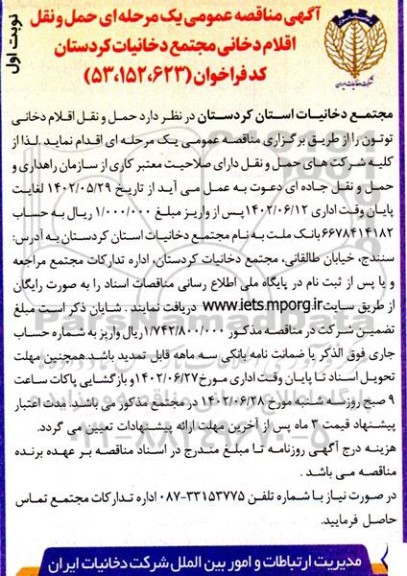 آگهی مناقصه عمومی یک مرحله ای حمل و نقل
اقلام دخانی مجتمع دخانیات کردستان
کد فراخوان (۵۳،۱۵۲،۶۲۳)
نوبت اول
شرکت دخانیات ایران
مجتمع دخانیات استان کردستان در نظر دارد حمل و نقل اقلام دخانی
توتون را از طریق برگزاری مناقصه عمومی یک مرحله ای اقدام نماید .لذا از
کلیه شرکت های حمل و نقل دارای صلاحیت معتبر کاری از سازمان راهداری و
حمل و نقل جاده ای دعوت به عمل می آید از تاریخ ۱۴۰۲/۰۵/۲۹ لغایت
پایان وقت اداری ۱۴۰۲/۰۶/۱۲ پس از واریز مبلغ ۱/۰۰۰/۰۰۰ ریال به حساب
۶۶۷۸۴۱۴۱۸۲ بانک ملت به نام مجتمع دخانیات استان کردستان به آدرس:
سنندج، خیابان طالقانی، مجتمع دخانیات کردستان، اداره تدارکات مجتمع مراجعه
و یا پس از ثبت نام در پایگاه ملی اطلاع رسانی مناقصات اسناد را به صورت رایگان
از طریق سایت www.iets.mporg.ir دریافت نمایند . شایان ذکر است مبلغ
تضمین شرکت در مناقصه مذکور ۱/۷۴۲/۸۰۰/۰۰۰ ریال واریز به شماره حساب
جاری فوق الذکر یا ضمانت نامه بانکی سه ماهه قابل تمدید باشد.همچنین مهلت
تحویل اسناد تا پایان وقت اداری مورخ ۱۴۰۲/۰۶/۲۷ و بازگشایی پاکات ساعت
۹ صبح روز سه شنبه مورخ ۱۴۰۲/۰۶/۲۸ در مجتمع مذکور می باشد. مدت اعتبار
پیشنهاد قیمت ۳ ماه پس از آخرین مهلت ارائه پیشنهادات تعیین می گردد.
هزینه درج آگهی روزنامه تا مبلغ مندرج در اسناد مناقصه بر عهده برنده
مناقصه می باشد .
در صورت نیاز با شماره تلفن ۳۳۱۵۳۷۷۵-۰۸۷ اداره تدارکات مجتمع تماس
حاصل فرمایید.
مدیریت ارتباطات و امور بین الملل شرکت دخانیات ایران